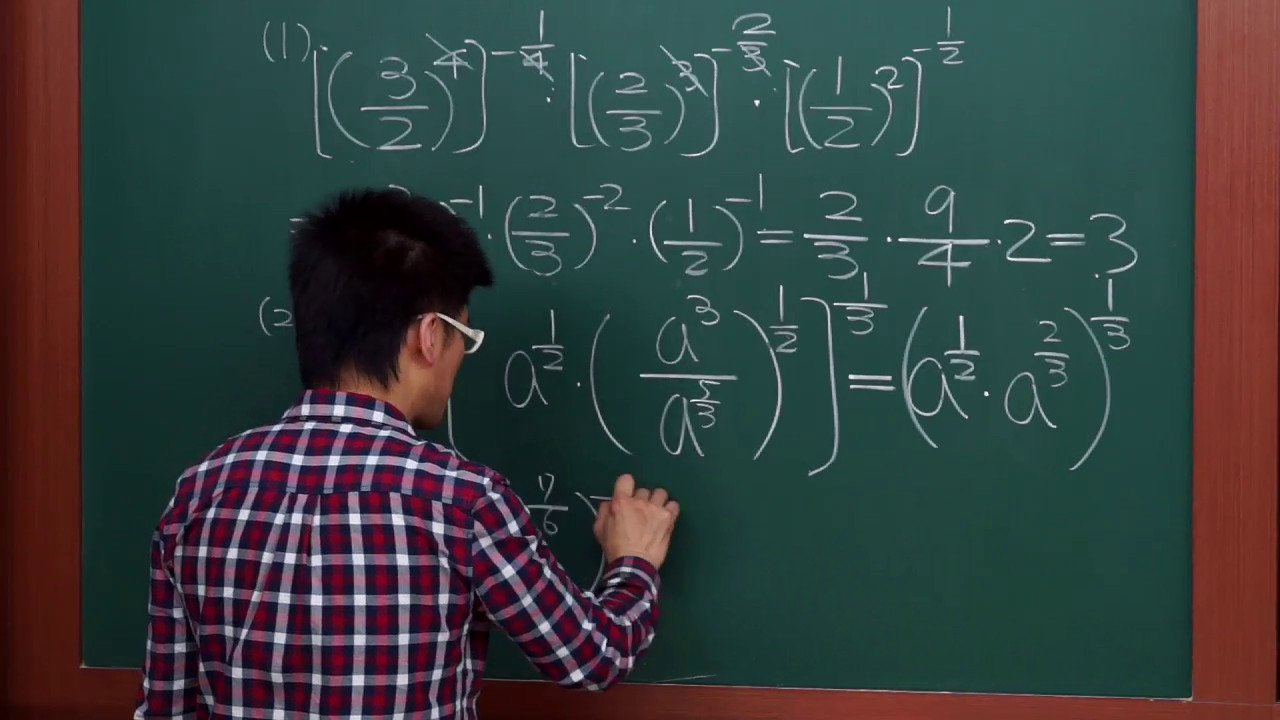 (1) [(3/2)^4]^(-1/4) · [(2/3)^3]^(-2/3) · [(1/2)^2]^(-1/2)
= ^(-1) · (2/3)^(-2) · (1/2)^(-1) = 2/3 · 9/4 · 2 = 3
(2 [a^(1/2) · (a^3/a^(5/3))^(1/2)]^(1/3) = (a^(1/2) · a^(2/3))^(1/3)
7/6 )